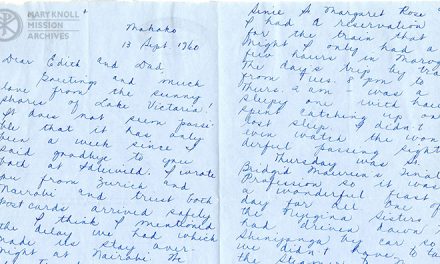 MARYKNOLL
MISSION
ARCHIVES
Mahako
13 Sept. 1960
Dear Edith and Dad
Greetings and much
love from the sunny
shores of Lake Victoria!
It does not seem possi-
ble that it has only
been a week since I
said goodbye to you
both at Idlewild. I wrote
you from Zurich and
Nairobi and trust both
post cards arrived safely.
I think I mentioned
the delay we had which
made us stay over-
night at Nairobi. We
Since Sr. Margaret Rose
& I had a reservation
for the train that
night I only had a
few hours in
The day's trip by train
from Tues. 5 pm to
Thurs. 2 am was a
sleepy one with hours
spent catching up on
lost sleep. I didn't
even watch the won-
derful passing sights.
Thursday was Sr.
Bridgid Maureen's Final
Profession so it was
a wonderful feast
day for all. One of
the Sisters
had driven down to
Shinyanga by car so
we didn't have to